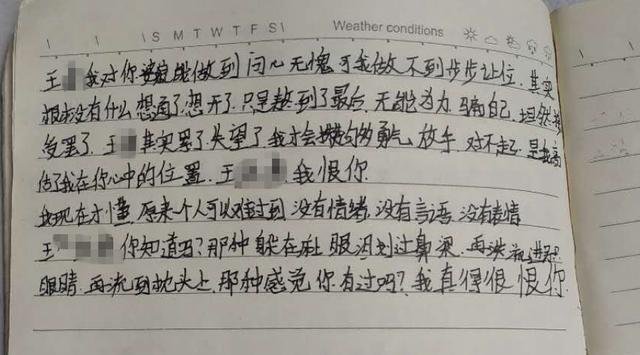 S M T W T F S
Weather conditions
王 我对你 能做到问心无愧 可我做不到步步让位. 其实
根本没有什么想通了, 想开了, 只是熬到了最后, 无能为力 骗自己. 坦然接
受罢了. 王 其实累了失望了我才会 勇气 放手. 对不起 是我高
估了我在你心中的位置. 王 我恨你
我现在才懂, 原来一个人可以难过到没有情绪, 没有言语, 没有表情
王 你知道吗? 那种躲在 眼泪划过鼻梁, 再 流进
眼睛. 再流到枕头上, 那种感觉你有过吗? 我真得很恨你